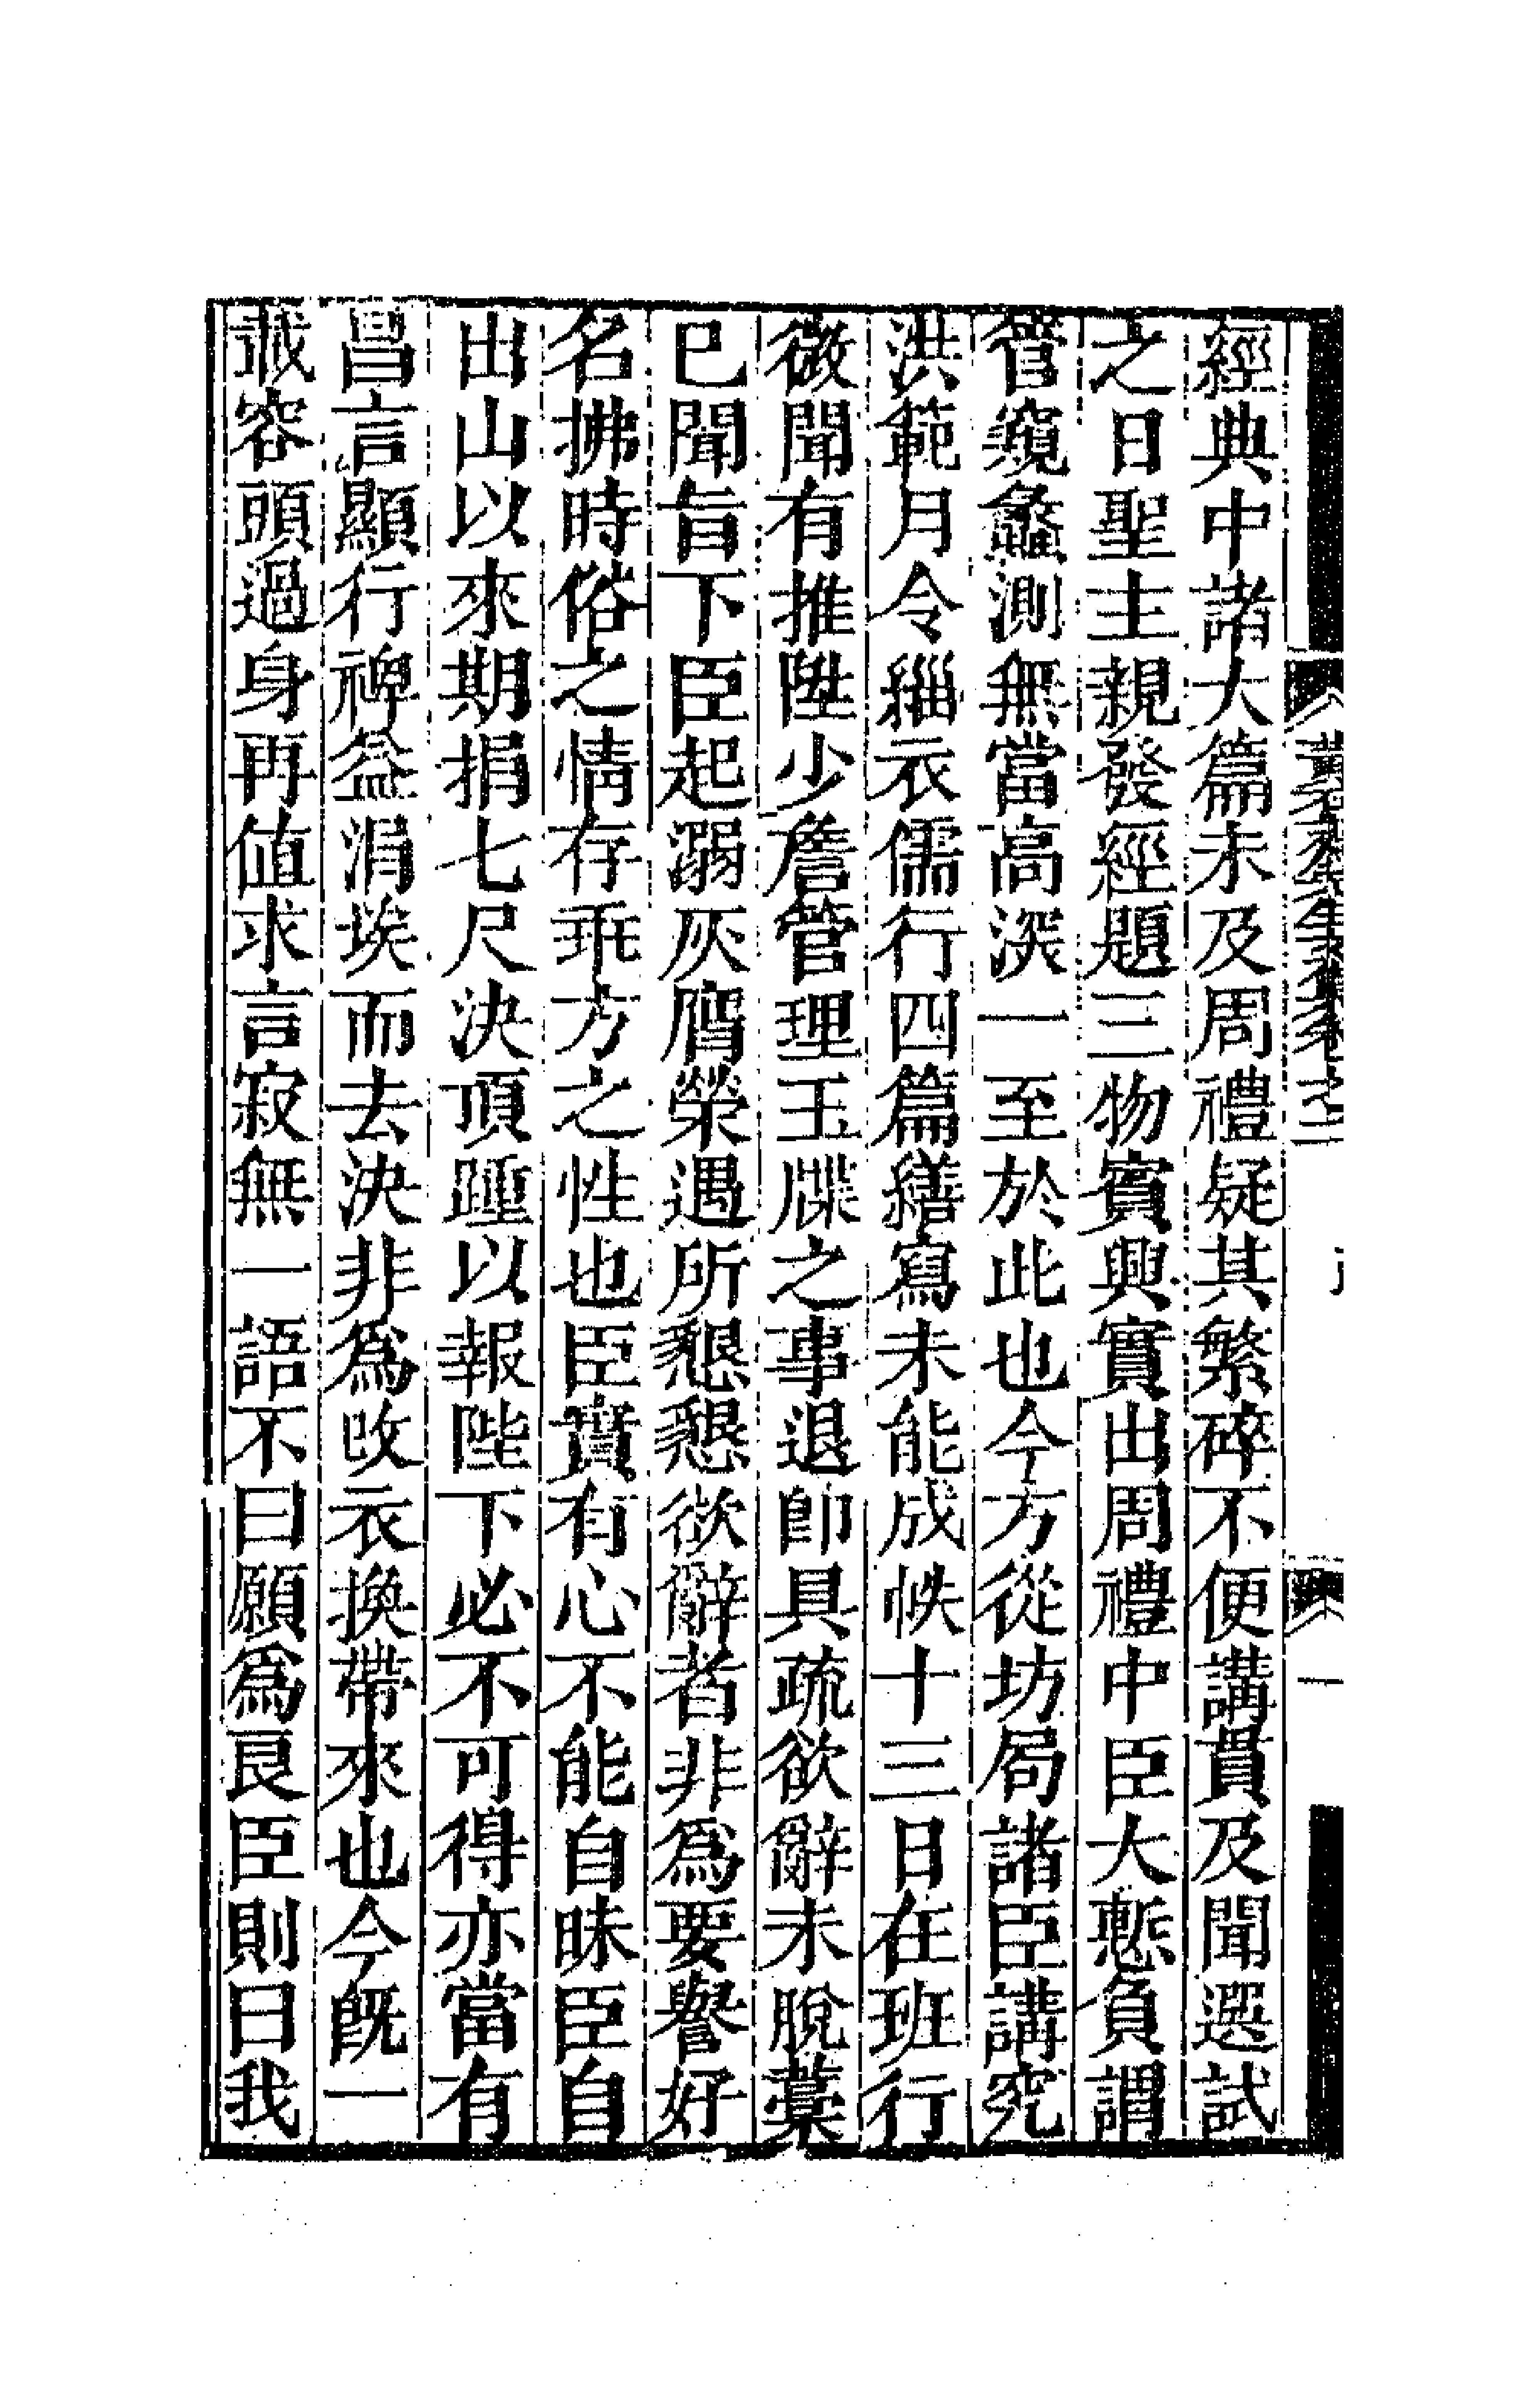 經典中諸大篇未及周禮疑其繁碎不便講貫及聞選試
之日聖主親發經題三物賓興實出周禮中臣大慙負謂
管窺蠡測無當高深一至於此也今方從坊局諸臣講究
洪範月令緇衣儒行四篇繕寫未能成帙十三日在班行
微聞有推陞少詹管理玉牒之事退卽具疏欲辭未脫藁
已聞旨下臣起溺灰膺榮遇所懇懇欲辭者非爲要譽好
名拂時俗之情存乖方之性也臣實有心不能自昧臣自
出山以來期捐七尺決頂踵以報陛下必不可得亦當有
昌言顯行裨益涓埃而去決非爲改衣換帶來也今既一
載容頭過身再值求言寂無一語不曰願爲良臣則曰我